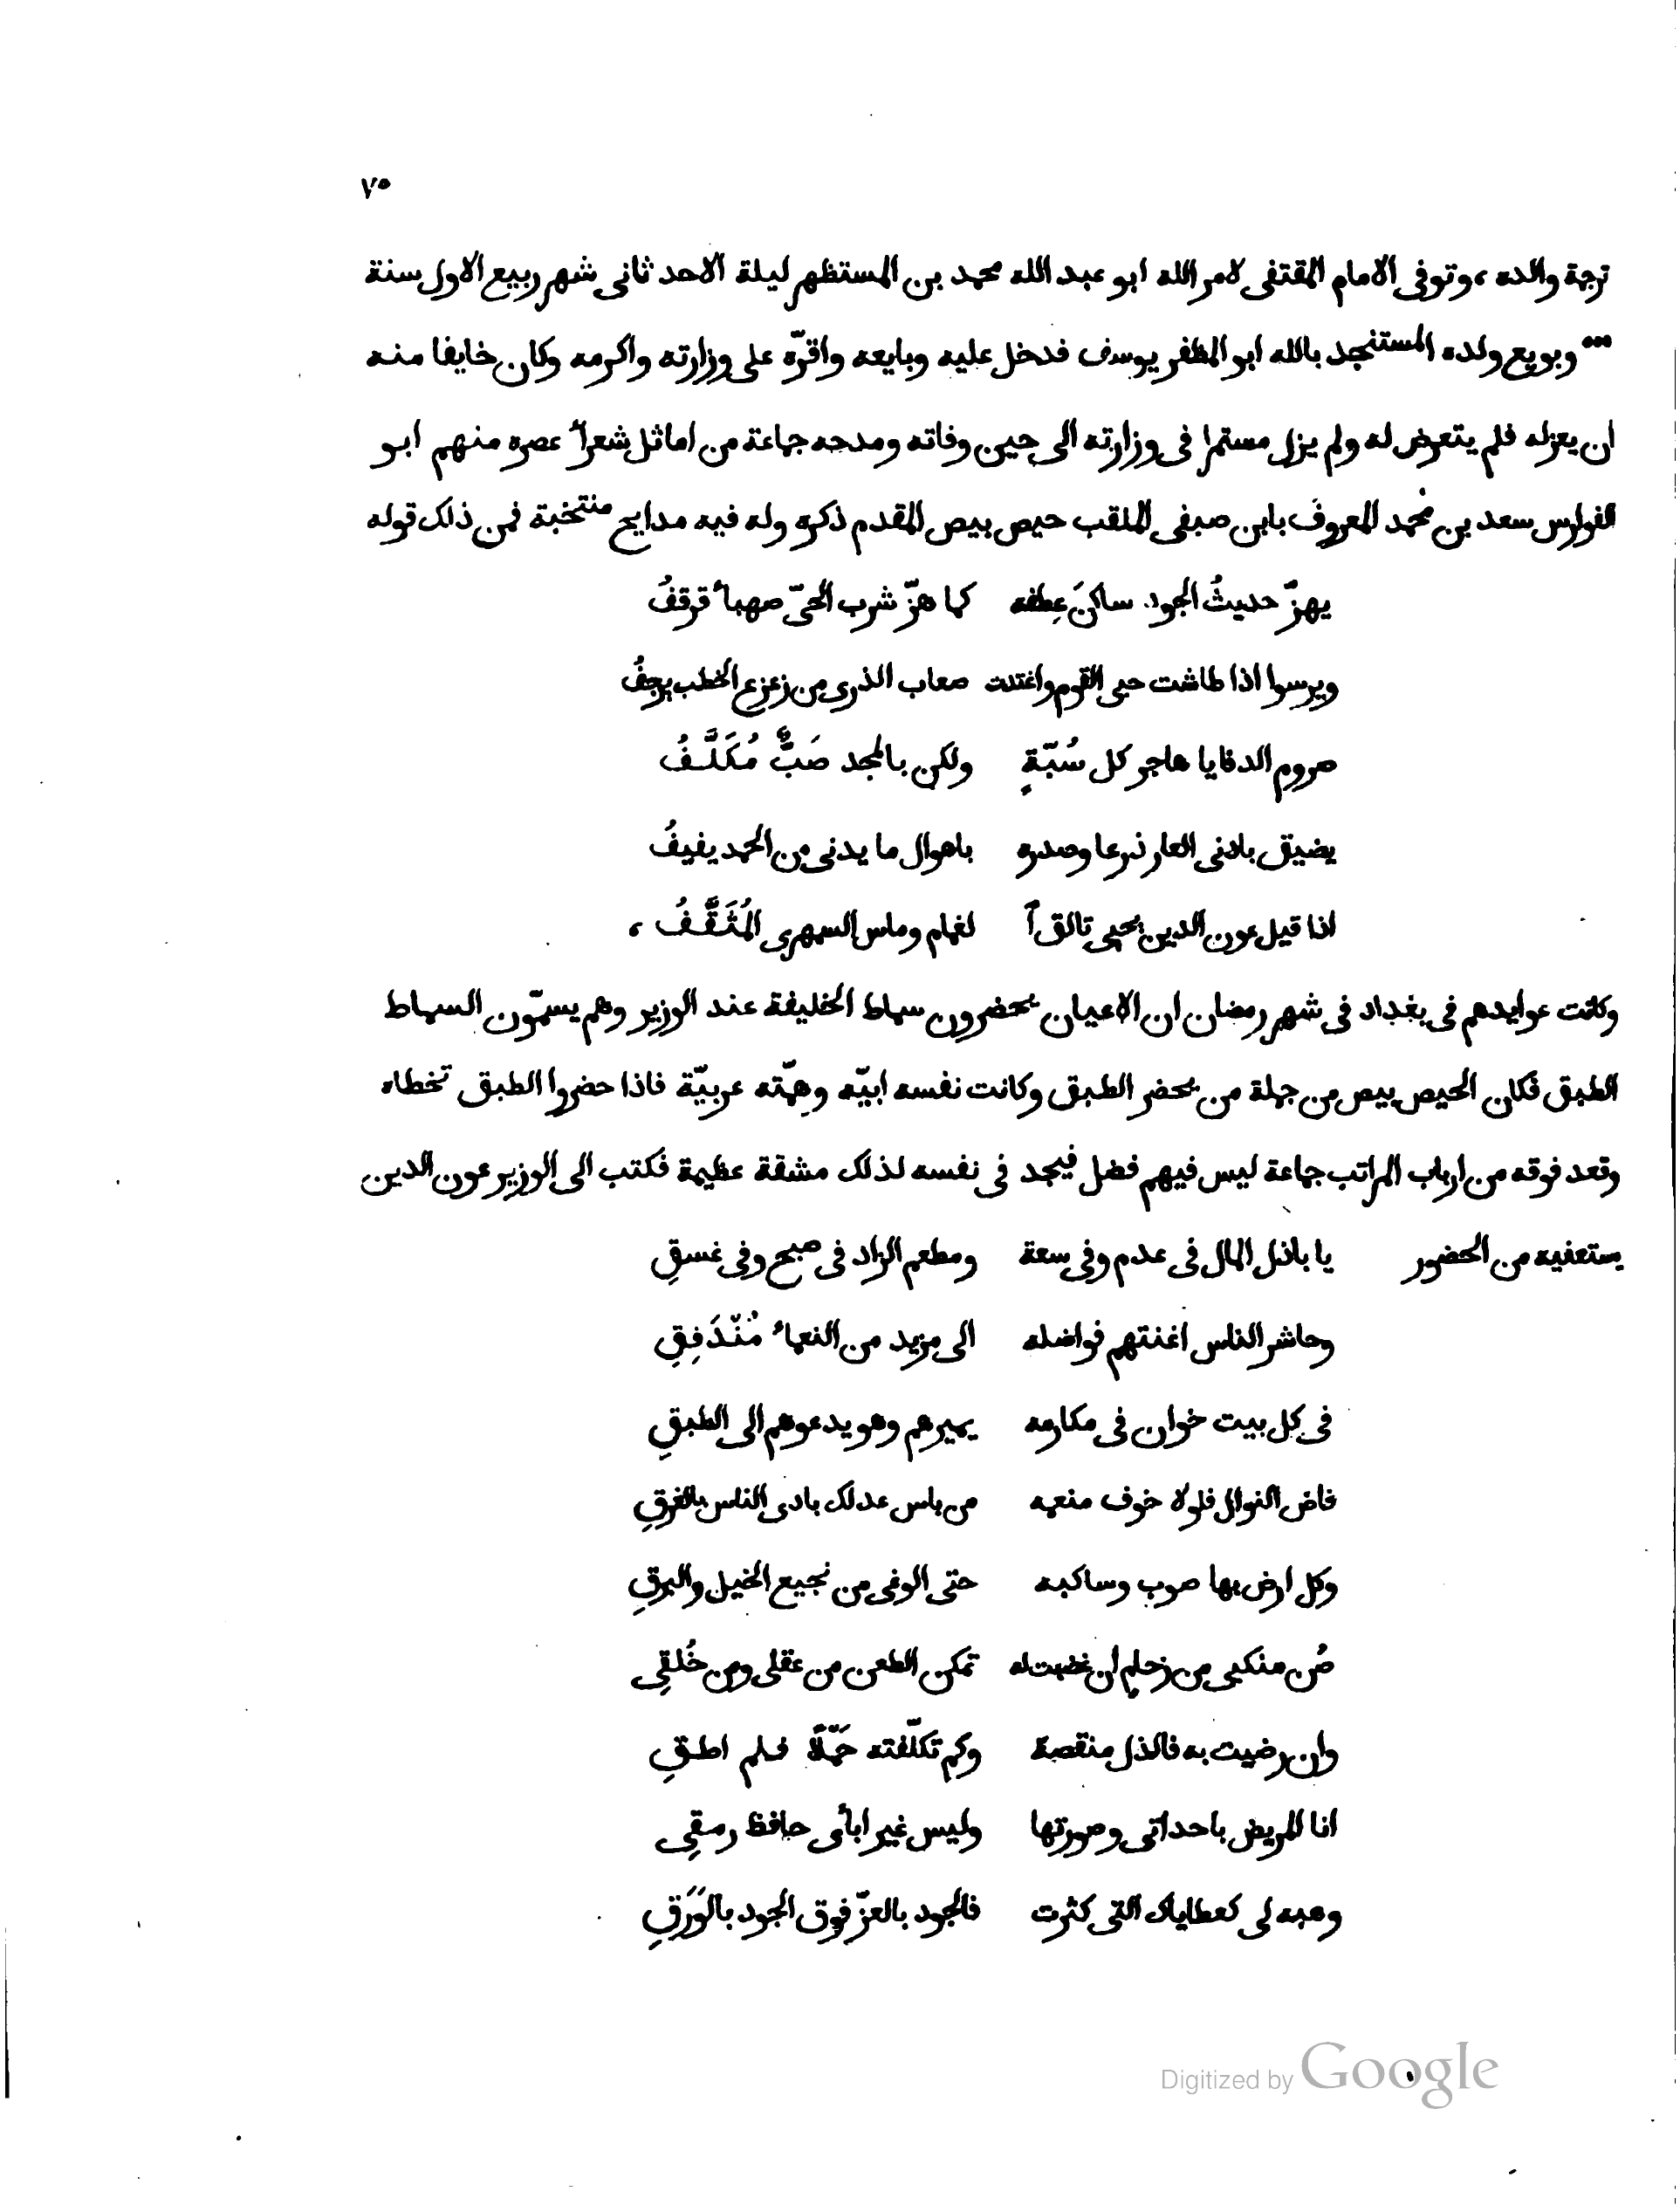 ٧٥
ترجمة والده ، وتوفى الامام المقتفى لامر الله ابو عبد الله محمد بن المستظهر ليلة الاحد ثانى شهر ربيع الاول سنة
٥٥٥ وبويع ولده المستنجد بالله ابو المظفر يوسف فدخل عليه وبايعه واقرّه على وزارته واكرمه وكان خايفا منه
ان يعزله فلم يتعرض له ولم يزل مستمرا فى وزارته الى حين وفاته ومدحه جماعة من اماثل شعرآ عصره منهم ابو
الفوارس سعد بن محمد المعروف بابن صيفى الملقب حيص بيص المقدم ذكره وله فيه مدايح منتخبة فمن ذلك قوله
يهزّ حديثُ الجود ساكنَ عِطفه كما هزّ شرب الحىّ صهبآ قرقفُ
ويرسوا اذا طاشت حبى القوم واغتدت صعاب الذرى من زعزع الخطب يرجفُ
صروم الدفايا هاجر كل سُبّةٍ ولكن بالمجد صَبٌّ مُكَلَّفُ
يضيق بادنى العار ذرعا وصدره باهوال ما يدنى من الحمد يفيفُ
اذا قيل عون الدين يحيى تالق آ لغمام وماس السمهرى المُثَقَّفُ ،
وكانت عوايدهم فى بغداد فى شهر رمضان ان الاعيان يحضرون سماط الخليفة عند الوزير وهم يسمّون السماط
الطبق فكان الحيص بيص من جملة من يحضر الطبق وكانت نفسه ابيّه وهمّته عربيّة فاذا حضروا الطبق تخطاه
وقعد فوقه من ارباب المراتب جماعة ليس فيهم فضل فيجد فى نفسه لذلك مشقة عظيمة فكتب الى الوزير عون الدين
يستعفيه من الحضور يا باذل المال فى عدم وفى سعة ومطعم الزاد فى صبح وفى غسقِ
وحاشر الناس اغنتهم فواضله الى مزيد من النعمآ مُنْدَفِقِ
فى كل بيت خوان فى مكارمه يميرهم وهو يدعوهم الى الطبقِ
فاض النوال فلولا خوف منعبه من باس عدلك بادى الناس بالغرقِ
وكل ارض بها صوب وساكبه حتى الوغى من نجيع الخيل والبرقِ
صُن منكبى من زحامٍ ان غضبت له تمكن الطعن من عقلى ومن خُلقِى
وان رضيت به فالذل منقصة وكم تكلّفته حَمْلًا فلم اطقِ
انا المريض باحداتى وصورتها وليس غير ابآى حافظ رمقِى
وهبه لى كعطاياك التى كثرت فالجود بالعزّ فوق الجود بالوَرَقِ
Digitized by Google